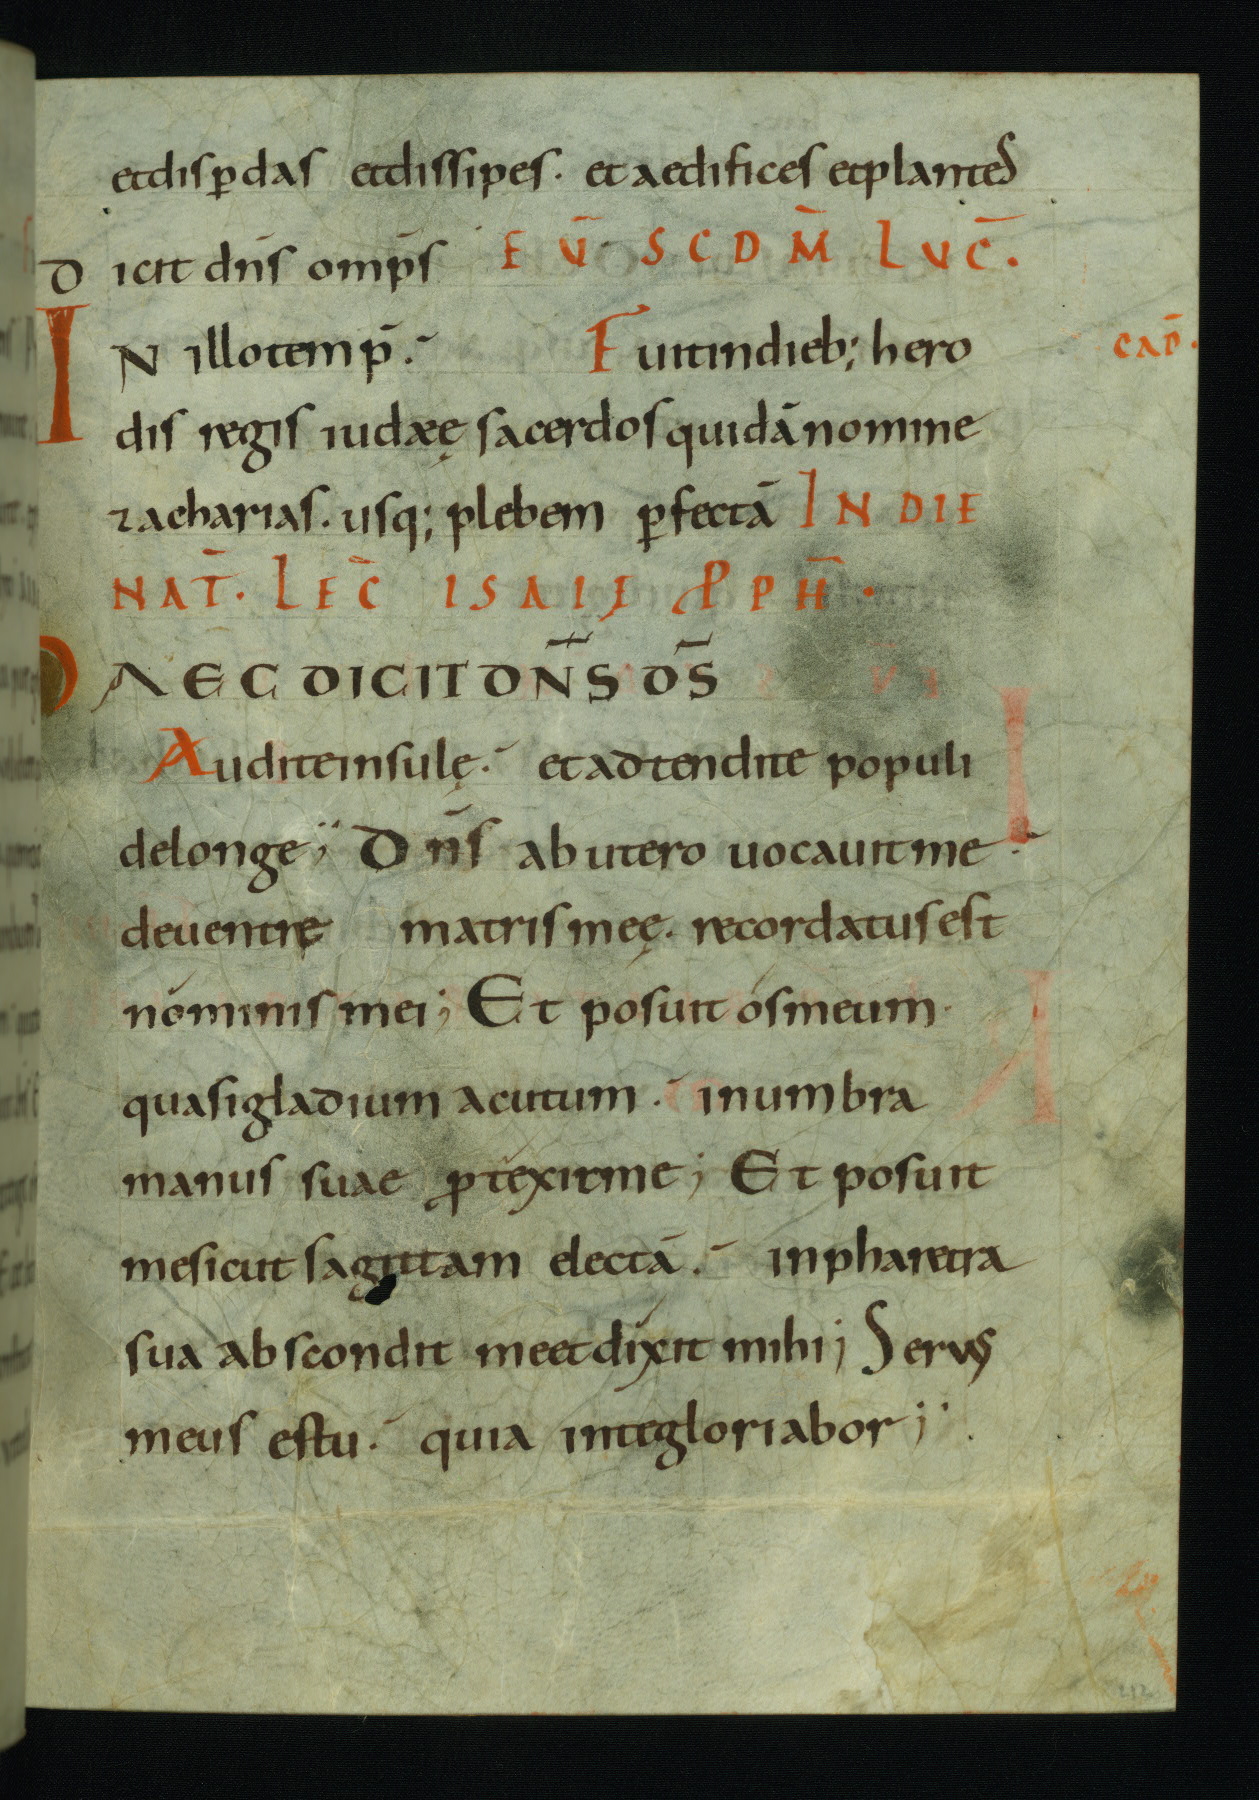 et disꝑdas et dissipes. et aedifices et plantes
Dicit dn̄s omp̄s EV̄ SCDM̄ LVC̄.
IN illo temp̄. Fuit in dieb; hero CAP̄.
dis regis iudææ̨ sacerdos quidā nomine
zacharias. usq; plebem ꝑfectā IN DIE
NAT̄. LEC̄ ISAIE PPH̄.
HAEC DICIT DN̄S DS̄
Audite insulę. et adtendite populi
de longe; Dn̄s ab utero uocauit me.
de uentre matris meę. recordatus est
nóminis mei; Et posuit ós meum
quasi gladium acutum. in umbra
manus suae ꝓtexit me; Et posuit
me sicut sagittam electā. in pharetra
sua abscondit me et dixit mihi; Seruus
meus es tu. quia in te gloriabor;